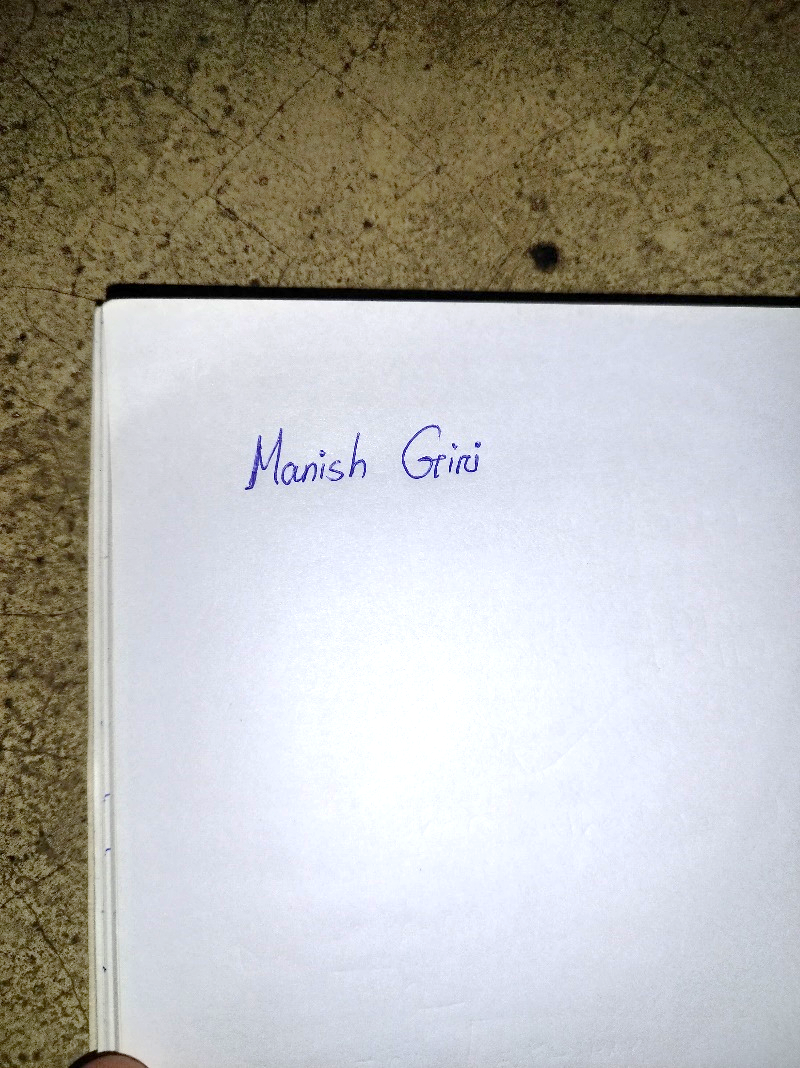 Manish Giri